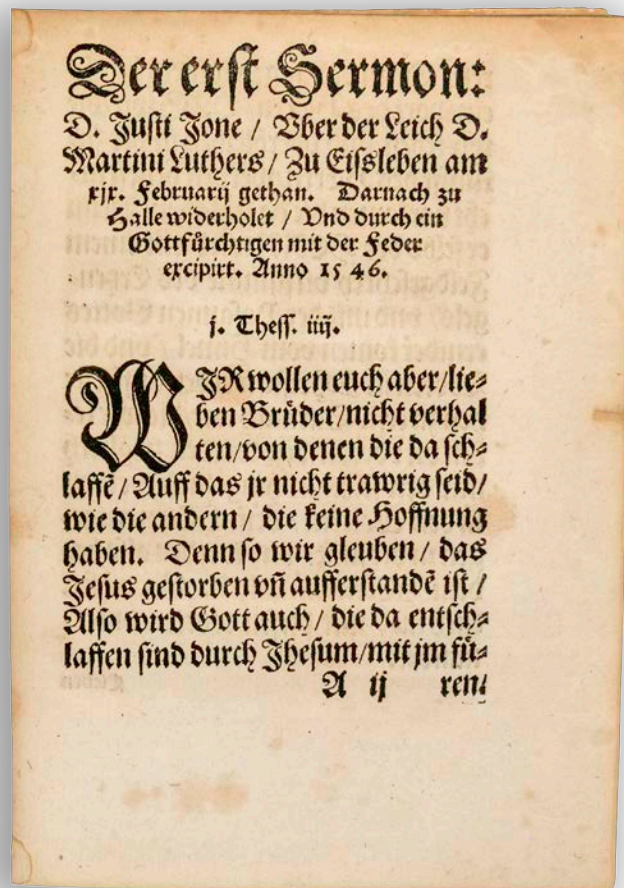 Der erst Sermon:
D. Justi Jone / Vber der Leich D.
Martini Luthers / Zu Eissleben am
xjx. Februarij gethan. Darnach zu
Halle widerholet / Vnd durch ein
Gottfürchtigen mit der Feder
excipirt. Anno 1546.
j. Thess. iiij.
WJR wollen euch aber/lie⸗
ben Brüder/nicht verhal
ten/von denen die da sch⸗
laffē / Auff das jr nicht trawrig seid/
wie die andern / die keine Hoffnung
haben. Denn so wir gleuben / das
Jesus gestorben vñ aufferstandē ist /
Also wird Gott auch / die da entsch⸗
laffen sind durch Jhesum/mit jm fü⸗
A ij ren/